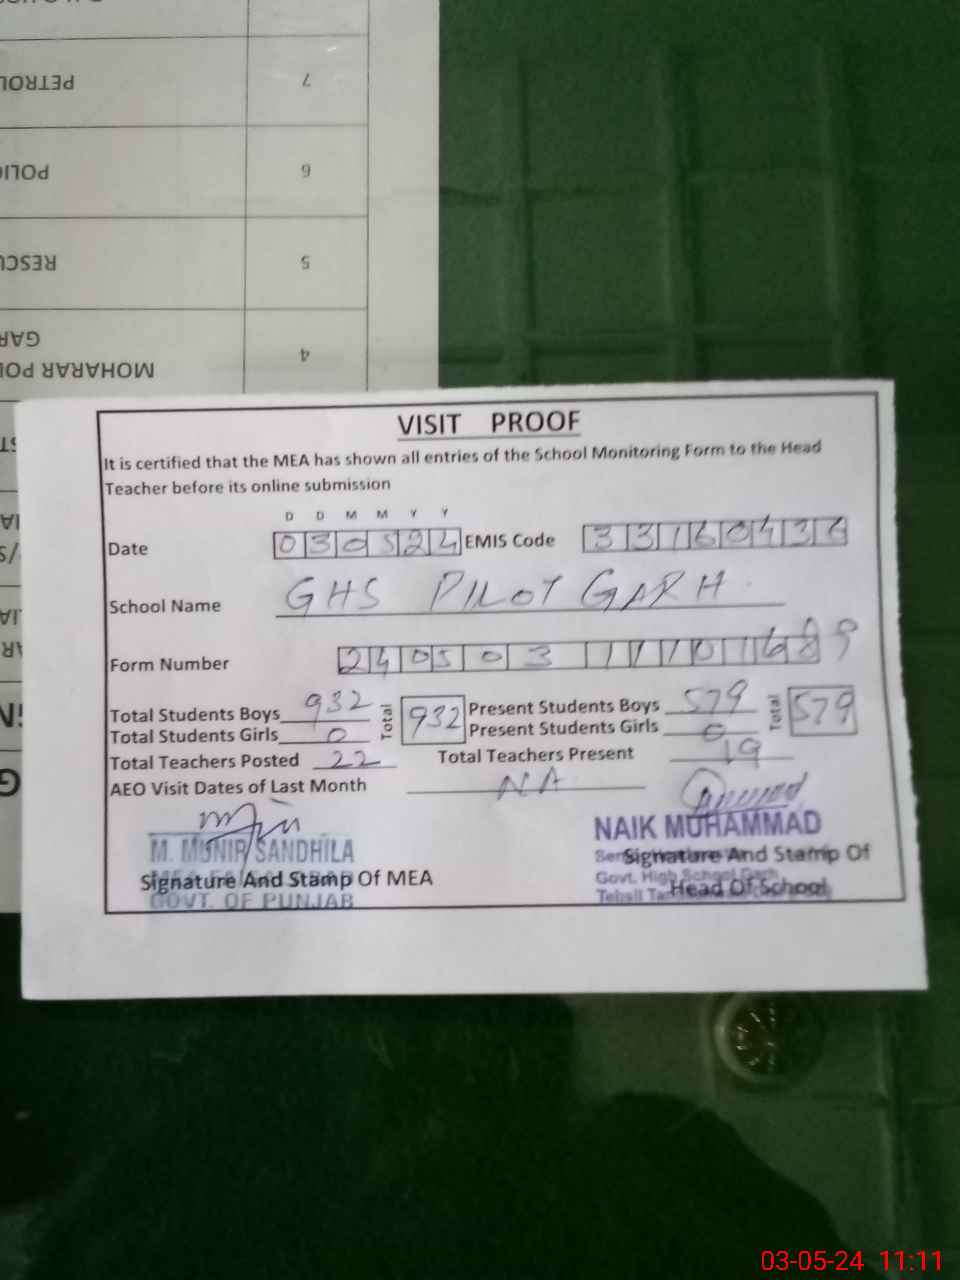 PETROL
7
POLI
6
RESCU
5
GAR
MOHARAR POL
4
VISIT PROOF
It is certified that the MEA has shown all entries of the School Monitoring Form to the Head
Teacher before its online submission
D D M M Y Y
Date 030524 EMIS Code 33160436
School Name GHS PILOT GARH
Form Number 24050311101689
Total Students Boys 932 Total 932 Present Students Boys 579 Total 579
Total Students Girls 0 Present Students Girls 0
Total Teachers Posted 22 Total Teachers Present 19
AEO Visit Dates of Last Month NA
M. MUNIR SANDHILA
NAIK MUHAMMAD
Signature And Stamp Of MEA
Signature And Stamp Of
Govt. High School Garh
Head Of School
GOVT. OF PUNJAB
03-05-24 11:11